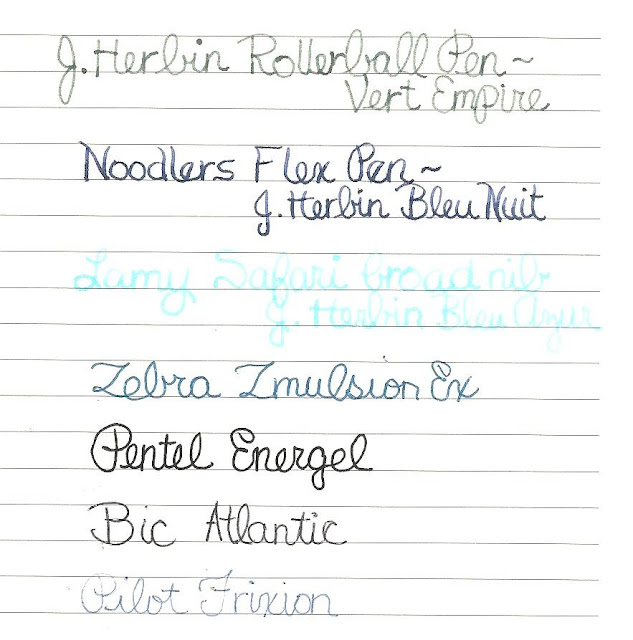 J. Herbin Rollerball Pen ~
Vert Empire
Noodlers Flex Pen ~
J. Herbin Bleu Nuit
Lamy Safari broad nib
J. Herbin Bleu Azur
Zebra Zmulsion Ex
Pentel Energel
Bic Atlantic
Pilot Frixion